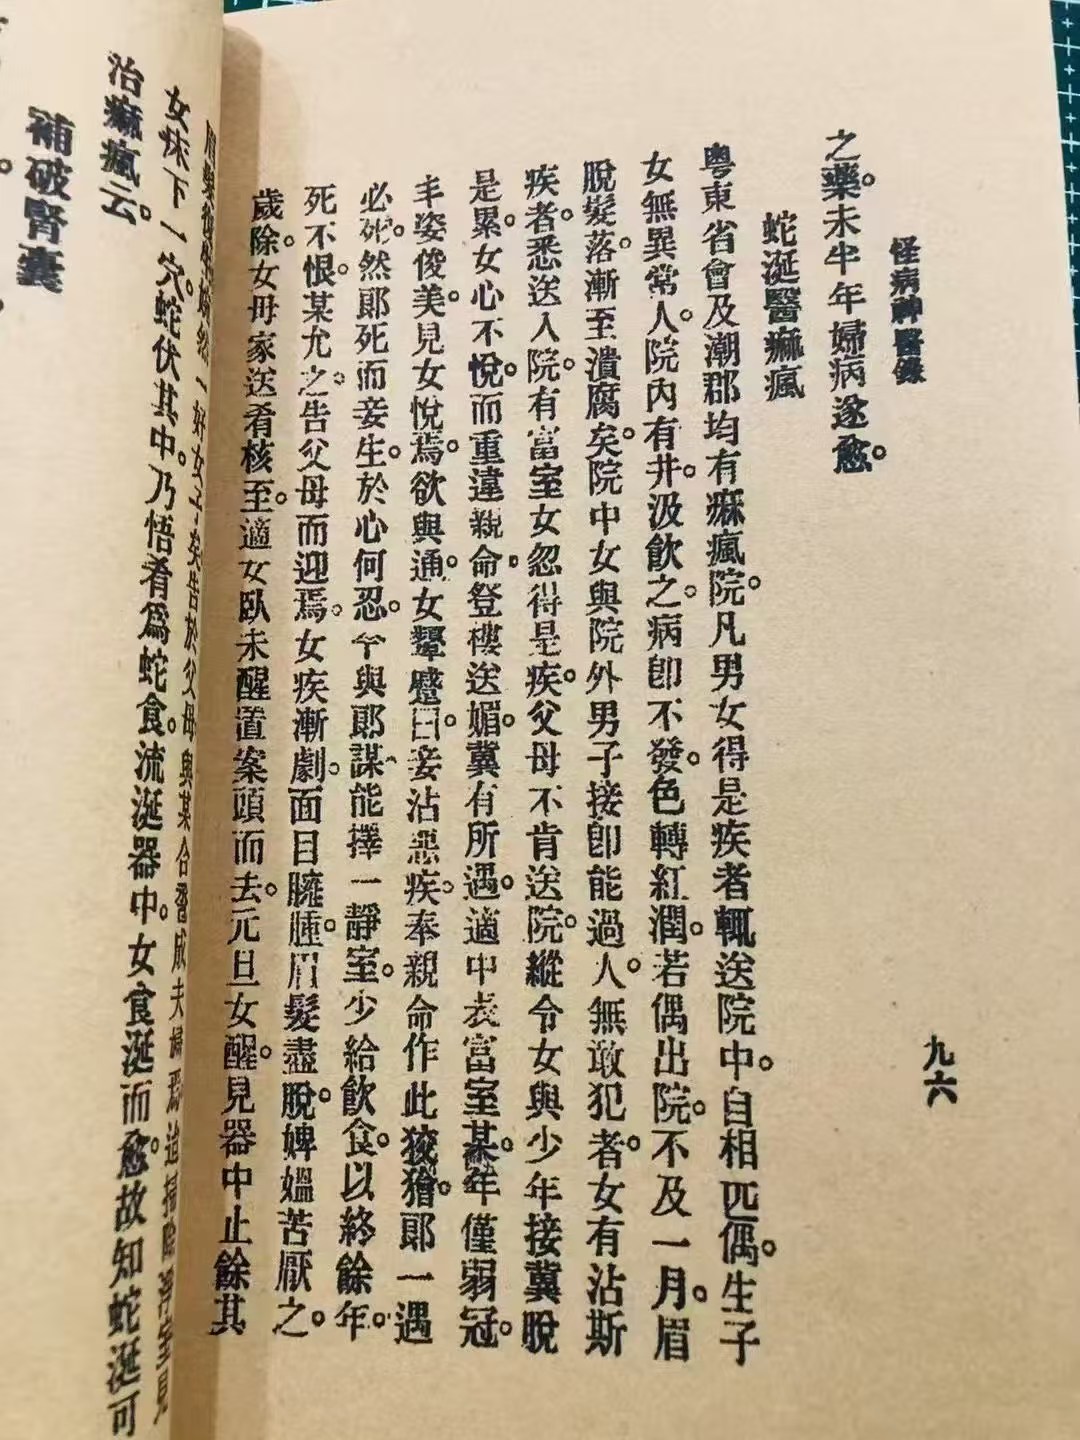 怪病神醫錄
九六
之藥。未半年婦病遂愈。
蛇涎醫痲瘋
粵東省會及潮郡均有痳瘋院。凡男女得是疾者輒送院中。自相匹偶。生子
女無異常人。院內有井。汲飲之。病卽不發。色轉紅潤。若偶出院。不及一月。眉
脫髮落。漸至潰腐矣。院中女與院外男子接卽能過人。無敢犯者。女有沾斯
疾者。悉送入院。有富室女忽得是疾。父母不肯送院。縱令女與少年接。冀脫
是累。女心不悅。而重違親命。登樓送媚。冀有所遇。適中表富室某。年僅弱冠。
丰姿俊美。見女悅焉。欲與通。女顰蹙曰。妾沾惡疾。奉親命作此狡獪。郎一遇
必死。然郎死而妾生。於心何忍。今與郎謀。能擇一靜室。少給飲食。以終餘年。
死不恨。某允之。告父母而迎焉。女疾漸劇。面目臃腫。眉髮盡脫。婢媼苦厭之。
歲除。女母家送肴核至。適女臥未醒。置案頭而去。元旦女醒。見器中止餘其
一好女子矣告於父母與某合巹成夫婦焉迨掃除淨室見
女床下一穴。蛇伏其中。乃悟肴爲蛇食。流涎器中。女食涎而愈。故知蛇涎可
治痲瘋云。
補破腎囊